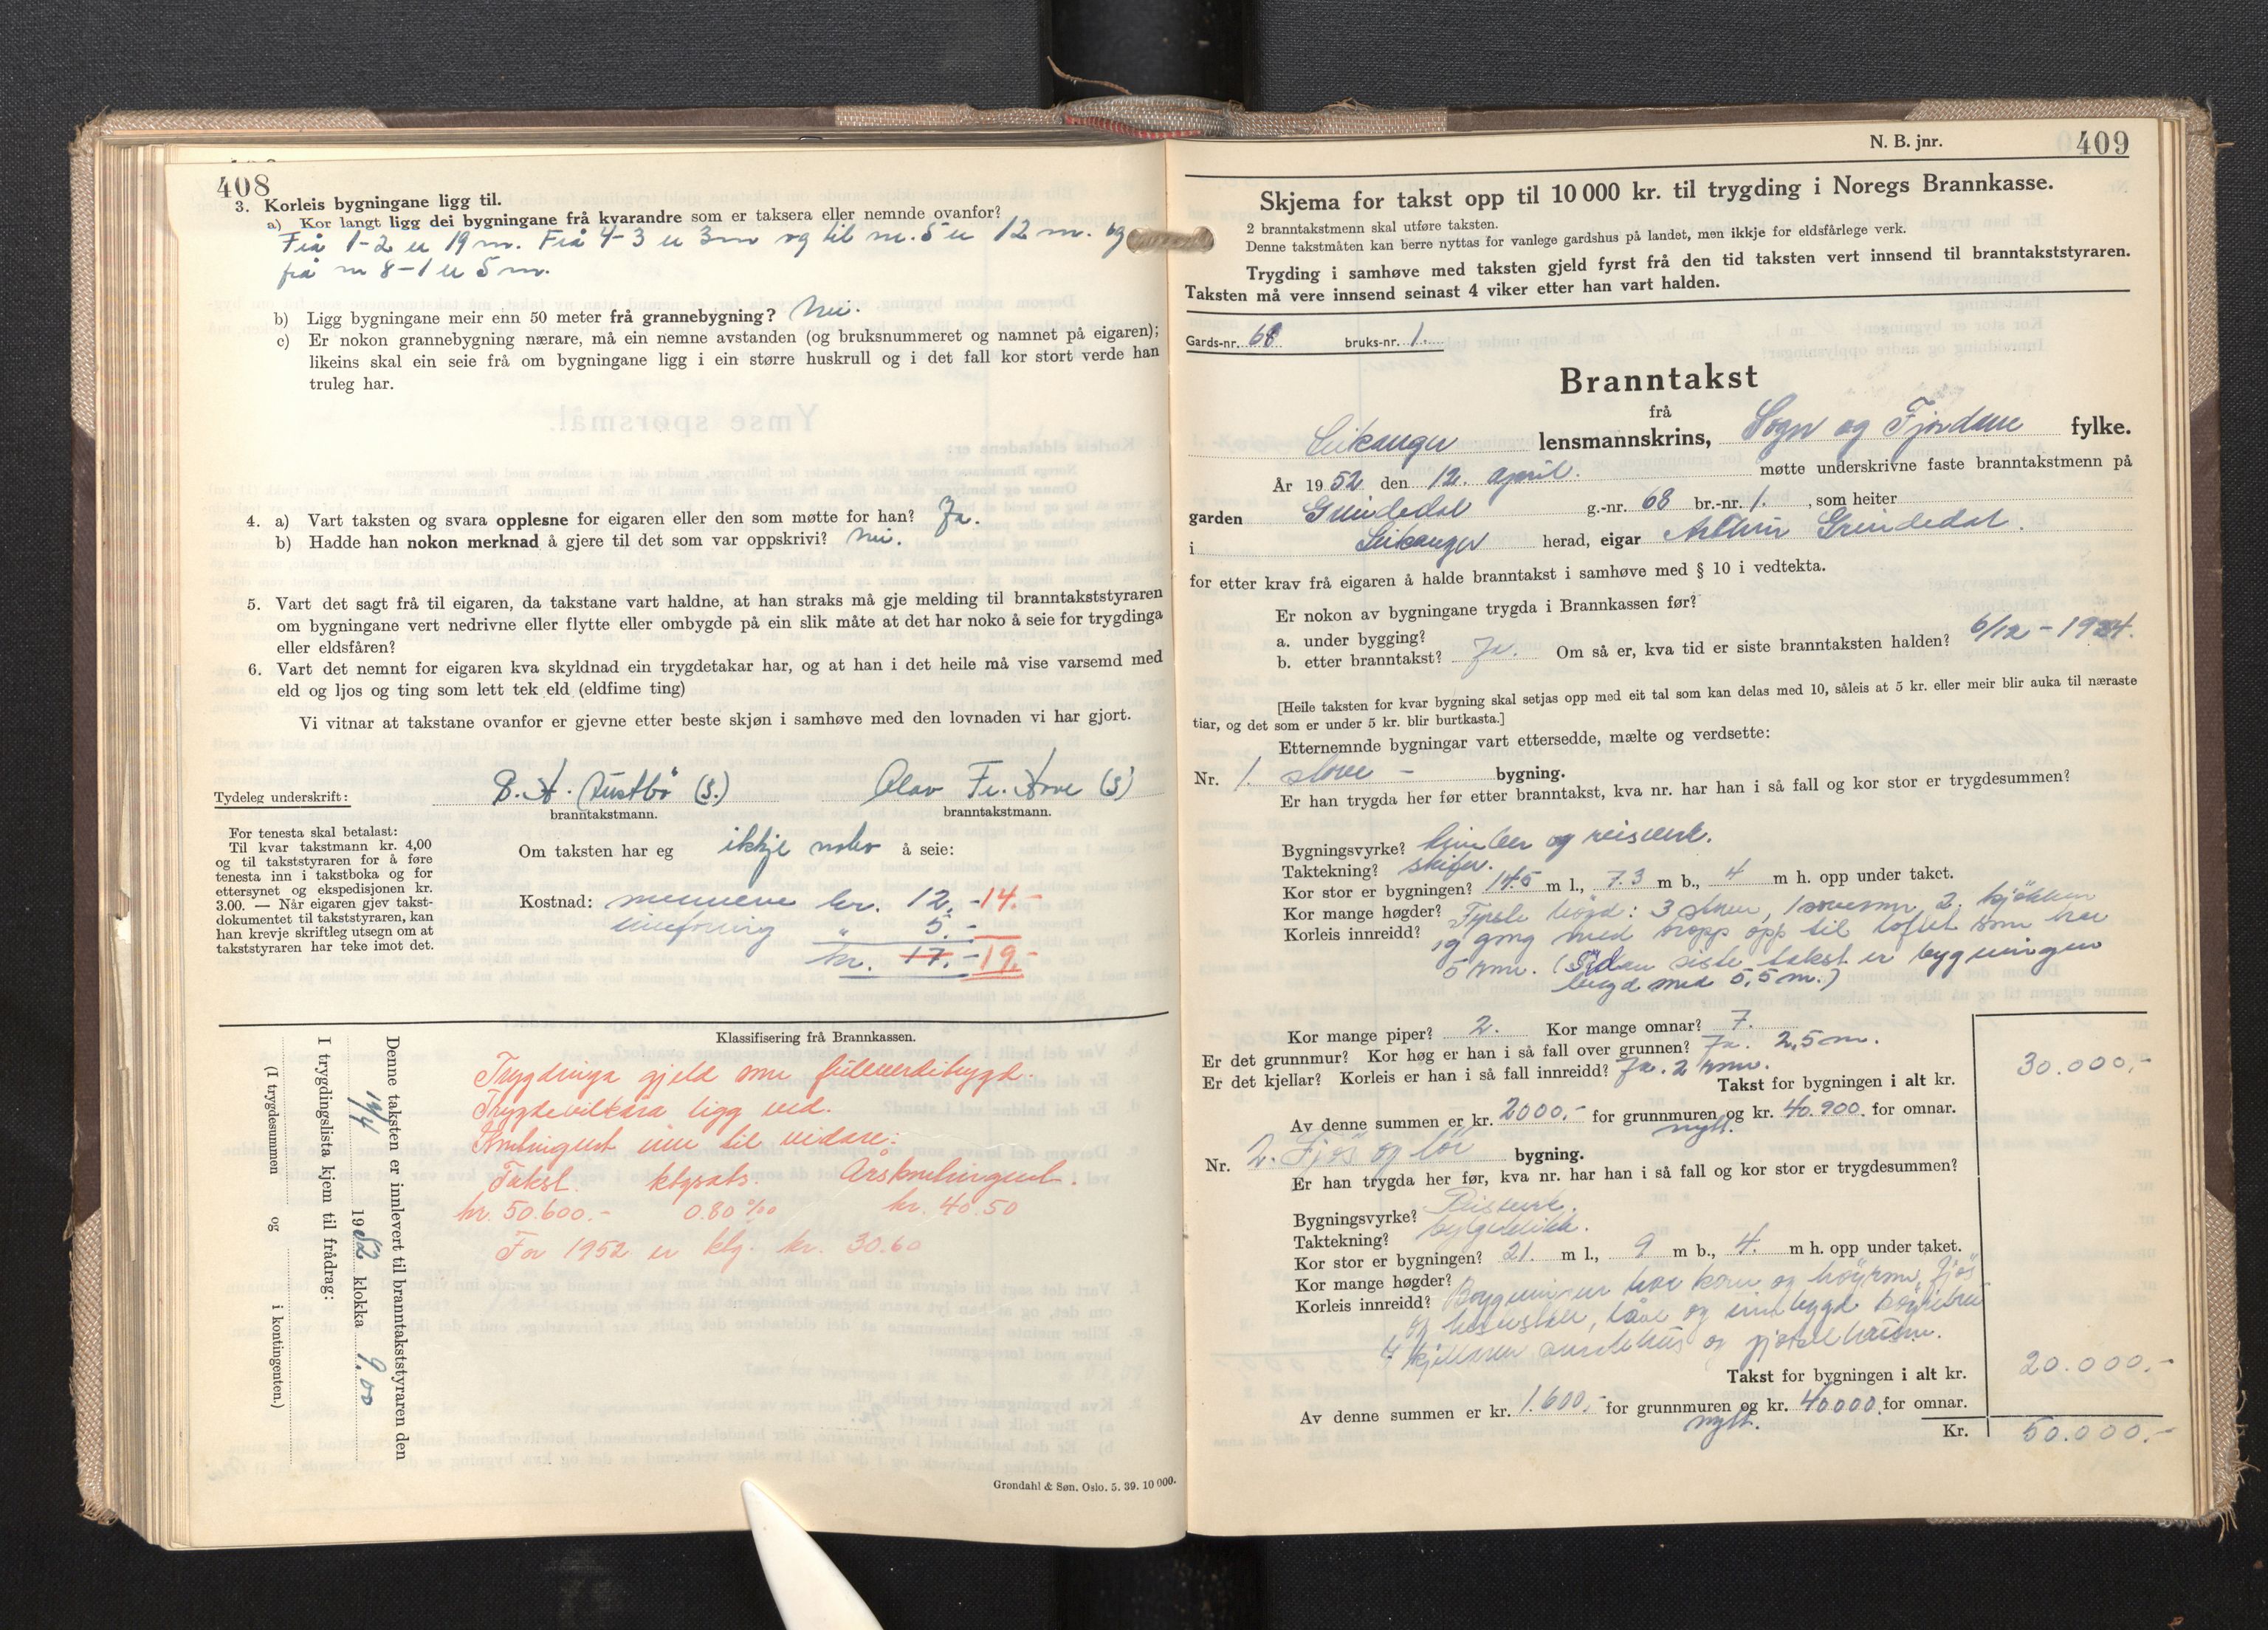 408
3. Korleis bygningane ligg til.
a) Kor langt ligg dei bygningane frå kvarandre som er taksera eller nemnde ovanfor?
Frå 1-2 er 19 m. Frå 4-3 er 3m og til nr. 5 er 12 m. og
frå nr 8-1 er 5 m.
b) Ligg bygningane meir enn 50 meter frå grannebygning? Nei.
c) Er nokon grannebygning nærare, må ein nemne avstanden (og bruksnummeret og namnet på eigaren);
likeins skal ein seie frå om bygningane ligg i ein større huskrull og i det fall kor stort verde han
truleg har.
4. a) Vart taksten og svara opplesne for eigaren eller den som møtte for han? Ja.
b) Hadde han nokon merknad å gjere til det som var oppskrivi? Nei.
5. Vart det sagt frå til eigaren, da takstane vart haldne, at han straks må gje melding til branntakststyraren
om bygningane vert nedrivne eller flytte eller ombygde på ein slik måte at det har noko å seie for trygdinga
eller eldsfåren?
6. Vart det nemnt for eigaren kva skyldnad ein trygdetakar har, og at han i det heile må vise varsemd med
eld og ljos og ting som lett tek eld (eldfime ting)
Vi vitnar at takstane ovanfor er gjevne etter beste skjøn i samhøve med den lovnaden vi har gjort.
Tydeleg underskrift: (s.) Olav Fr. Hove (s)
branntakstmann. branntakstmann.
For tenesta skal betalast:
Til kvar takstmann kr. 4,00
og til takststyraren for å føre
tenesta inn i takstboka og for
ettersynet og ekspedisjonen kr.
3.00. — Når eigaren gjev takst-
dokumentet til takststyraren, kan
han krevje skriftleg utsegn om at
takststyraren har teke imot det.
Om taksten har eg ikkje noko å seie:
Kostnad: mennene kr. 12.- 14.-
innføring " 5.-
kr. 17.- 19.-
Klassifisering frå Brannkassen.
Trygdinga gjeld som fullverdetrygd.
Trygdevilkåra ligg ved.
Kontingent inn til vidare:
Takst. ktgsats. Årskontingent.
kr. 50.600.- 0.80 ‰ kr. 40.50
For 1952 er ktg. kr. 30.60
Denne taksten er innlevert til branntakststyraren den
19/4 1952 klokka 9.00
I trygdingslista kjem til frådrag:
(I trygdesummen og i kontingenten.)
Grøndahl & Søn. Oslo. 5. 39. 10 000.
N. B. jnr. 409
Skjema for takst opp til 10 000 kr. til trygding i Noregs Brannkasse.
2 branntakstmenn skal utføre taksten.
Denne takstmåten kan berre nyttas for vanlege gardshus på landet, men ikkje for eldsfårlege verk.
Trygding i samhøve med taksten gjeld fyrst frå den tid taksten vert innsend til branntakststyraren.
Taksten må vere innsend seinast 4 viker etter han vart halden.
Gards-nr. 68 bruks-nr. 1.
Branntakst
frå
Leikanger lensmannskrins, Sogn og Fjordane fylke.
År 1952 den 12. april. møtte underskrivne faste branntakstmenn på
garden Grindedal g.-nr. 68 br.-nr. 1. , som heiter
i Leikanger herad, eigar Arthur Grindedal.
for etter krav frå eigaren å halde branntakst i samhøve med § 10 i vedtekta.
Er nokon av bygningane trygda i Brannkassen før?
a. under bygging?
b. etter branntakst? Ja. Om så er, kva tid er siste branntaksten halden? 6/12 - 1924.
[Heile taksten for kvar bygning skal setjas opp med eit tal som kan delas med 10, såleis at 5 kr. eller meir blir auka til næraste
tiar, og det som er under 5 kr. blir burtkasta.]
Etternemnde bygningar vart ettersedde, mælte og verdsette:
Nr. 1. stove - bygning.
Er han trygda her før etter branntakst, kva nr. har han i så fall og kor stor er trygdesummen?
Bygningsvyrke? tømber og reisverk.
Taktekning? skifer.
Kor stor er bygningen? 14.5 m l., 7.3 m b., 4 m h. opp under taket.
Kor mange høgder? Fyrste høgd: 3 stover, 1 soverom, 2. kjøkken
Korleis innreidd? og gong med tropp opp til loftet som har
5 rom. (Sidan siste takst er bygningen
bugd med 5,5 m.)
Kor mange piper? 2. Kor mange omnar? 7.
Er det grunnmur? Kor høg er han i så fall over grunnen? Ja. 2,5 m.
Er det kjellar? Korleis er han i så fall innreidd? Ja. 2 rom.
Takst for bygningen i alt kr. 30.000,-
Av denne summen er kr. 2000.- for grunnmuren og kr. 40.900. for omnar.
nytt.
Nr. 2. Fjös og löe bygning.
Er han trygda her før, kva nr. har han i så fall og kor stor er trygdesummen?
Bygningsvyrke? Reisverk.
Taktekning? bylgjeblikk.
Kor stor er bygningen? 21. m l., 9 m b., 4. m h. opp under taket.
Kor mange høgder? Bygningen har korn og höyrom, fjös
Korleis innreidd? og hesestall, låve og innbygd köyrebru
I kjellaren surslehus og gjötselhusrom.
Takst for bygningen i alt kr. 20.000.-
Av denne summen er kr. 1.600.- for grunnmuren og kr. 40000. for omnar.
nytt.
Kr. 50.000.-